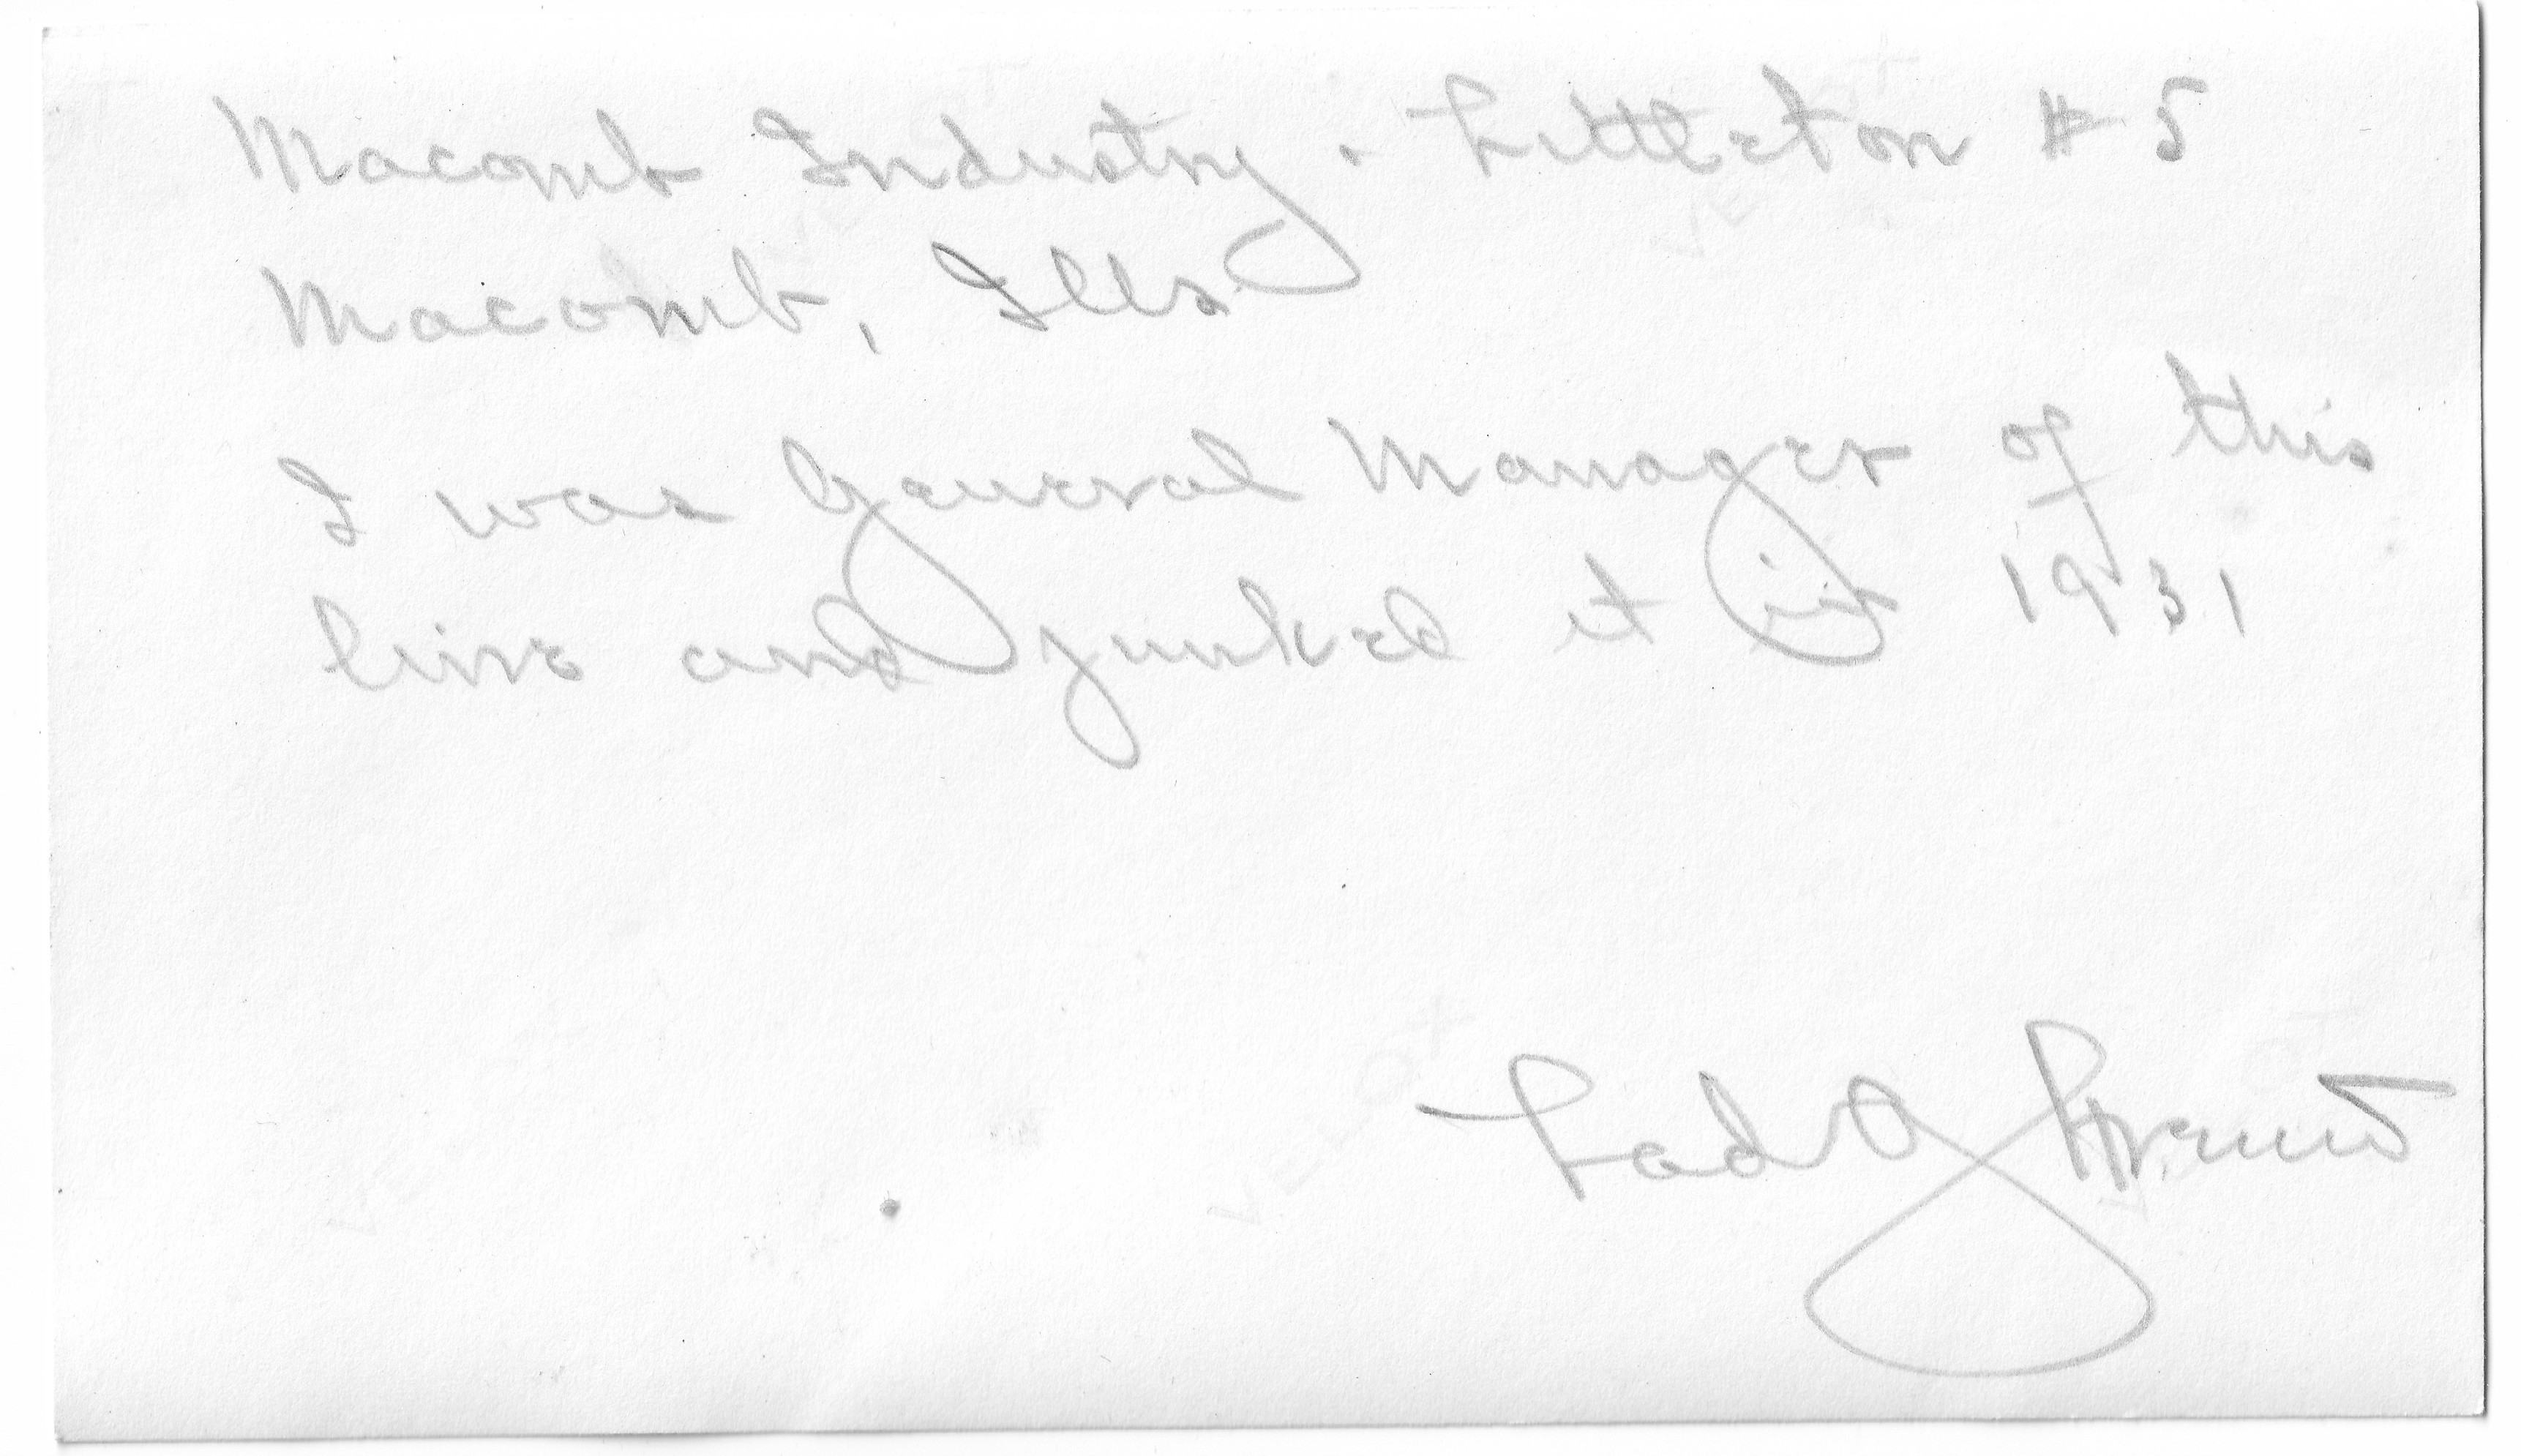 Macomb Industry. Littleton #5
Macomb, Ills
I was General Manager of this
line and junked it in 1931
Lad